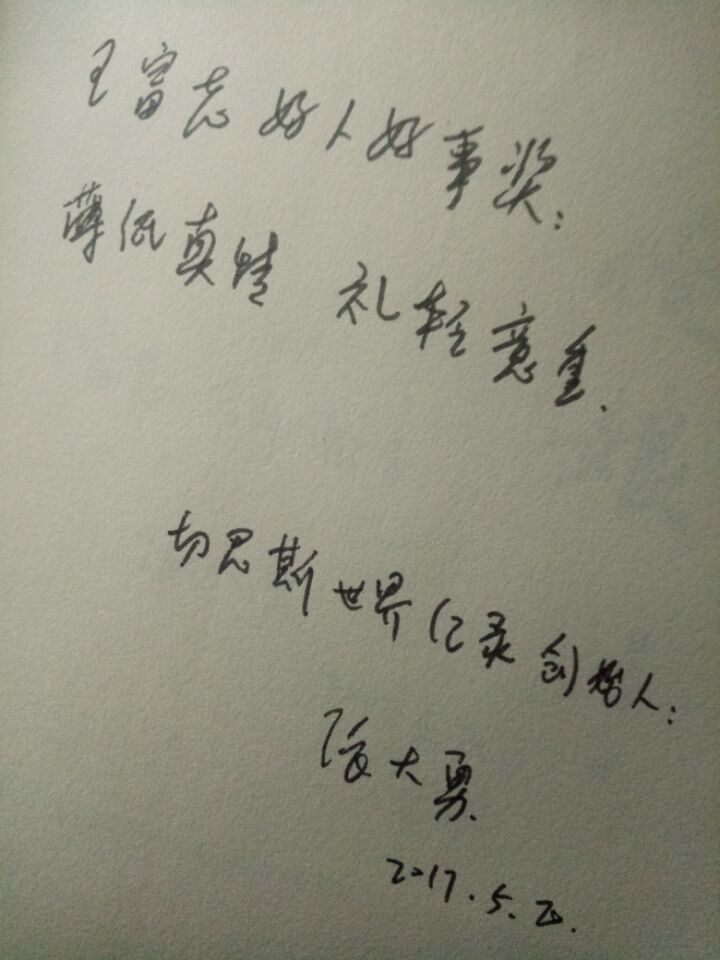 王富志好人好事奖:
薄纸真情 礼轻意重.
切思斯世界纪录创始人:
张大勇.
2017.5.20.